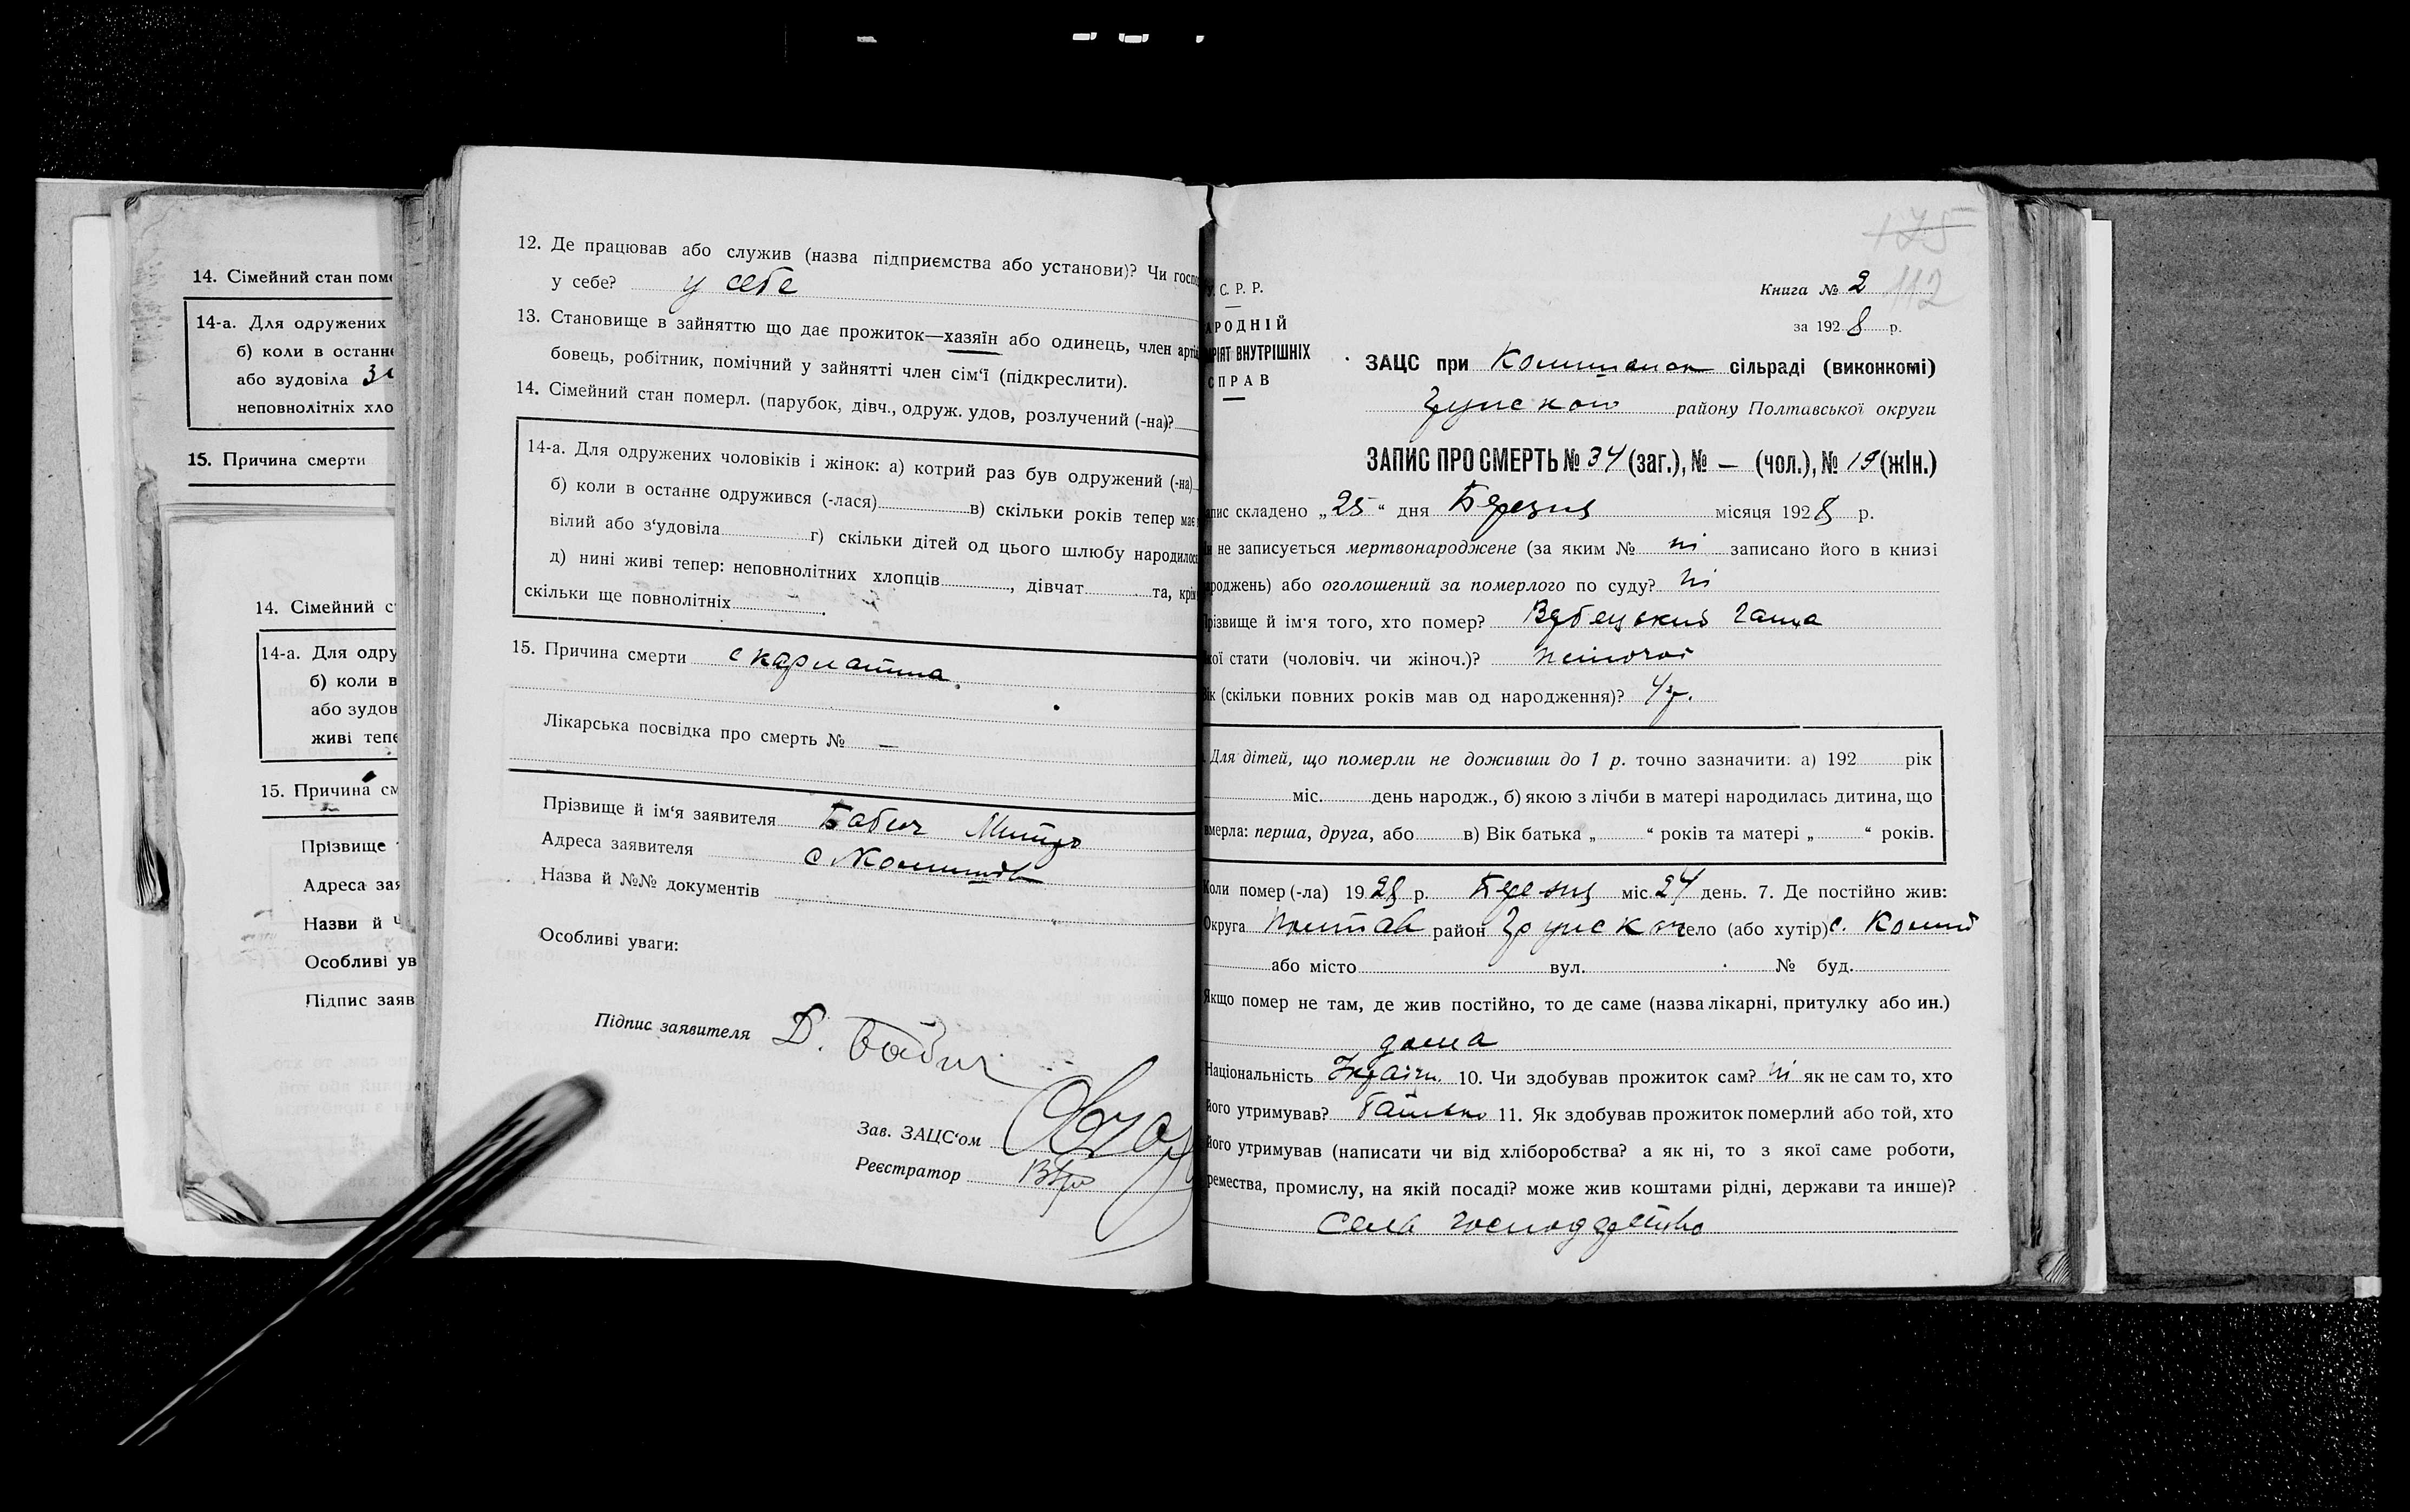 14. Сімейний стан поме
14-а. Для одружених
б) коли в останнє
або зудовіла
неповнолітніх хло
15. Причина смерти
14. Сімейний с
14-а. Для одру
б) коли в
або зудов
живі тепе
15. Причина см
Прізвище
Адреса зая
Назви й
Особливі ув
Підпис заяв
12. Де працював або служив (назва підприємства або установи)? Чи госпо
у себе? у себе
13. Становище в зайняттю що дає прожиток—хазяїн або одинець, член арті
бовець, робітник, помічний у зайнятті член сім‘ї (підкреслити).
14. Сімейний стан померл. (парубок, дівч., одруж. удов, розлучений (-на)?
14-а. Для одружених чоловіків і жінок: а) котрий раз був одружений (-на)
б) коли в останнє одружився (-лася) в) скільки років тепер має
вілий або з‘удовіла г) скільки дітей од цього шлюбу народилось
д) нині живі тепер: неповнолітних хлопців , дівчат та, крім
скільки ще повнолітніх .
15. Причина смерти скарлатина.
Лікарська посвідка про смерть № —
Прізвище й ім‘я заявителя Бабич Митро
Адреса заявителя с
Назва й №№ документів
Особливі уваги:
Підпис заявителя Д. Бабич
Зав. ЗАЦС‘ом
Реєстратор
175
112
У.С.Р.Р.
АРОДНІЙ
РІЯТ ВНУТРІШНІХ
СПРАВ
Книга № 2
за 1928 р.
ЗАЦС при сільраді (виконкомі)
району Полтавської округи
ЗАПИС ПРО СМЕРТЬ № 34 (заг.), № — (чол.), № 19 (жін.)
апис складено „25“ дня Березня місяця 1928 р.
не записується мертвонароджене (за яким № ні записано його в книзі
ароджень) або оголошений за померлого по суду? ні
різвище й ім‘я того, хто помер?
кої стати (чоловіч. чи жіноч.)? жіночої
Вік (скільки повних років мав од народження)? 4 р.
Для дітей, що померли не доживши до 1 р. точно зазначити: а) 192 рік
міс. день народж., б) якою з лічби в матері народилась дитина, що
вмерла: перша, друга, або в) Вік батька „ “ років та матері „ “ років.
Коли помер (-ла) 1928 р. Березня міс. 24 день. 7. Де постійно жив:
Округа Полтав район село (або хутір) с.
або місто вул. № буд.
Якщо помер не там, де жив постійно, то де саме (назва лікарні, притулку або ин.)
дома
Національність Україн. 10. Чи здобував прожиток сам? ні як не сам то, хто
його утримував? Батько 11. Як здобував прожиток померлий або той, хто
його утримував (написати чи від хліборобства? а як ні, то з якої саме роботи,
ремества, промислу, на якій посаді? може жив коштами рідні, держави та инше)?